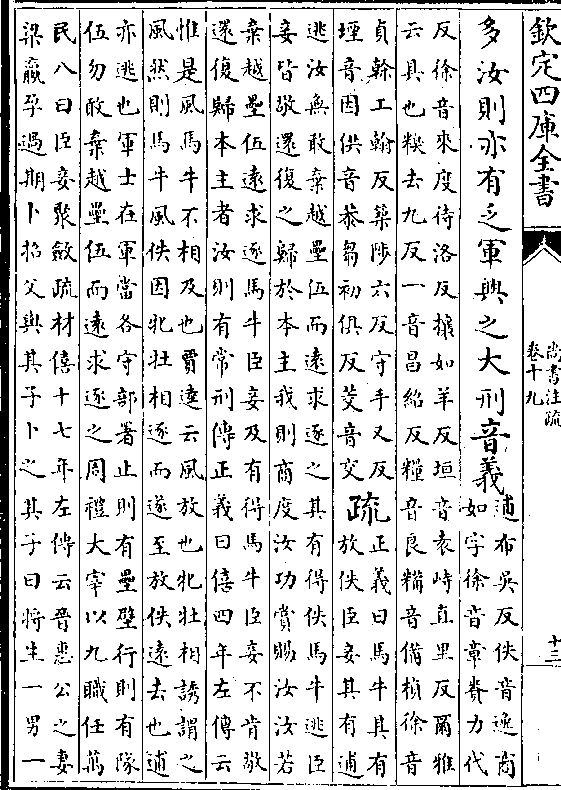 欽定四庫全書
尚書注疏
卷十九
十三
多汝則亦有乏軍興之大刑音義
逋布吳反佚音逸商
如字徐音章賚力代
反徐音來度待洛反攘如羊反垣音袁峙直里反爾雅
云具也糗去九反一音昌紹反糧音良糒音備楨徐音
貞榦工翰反築陟六反守手又反
堙音因供音恭芻初俱反茭音交
疏
正義曰馬牛其有
放佚臣妾其有逋
逃汝無敢棄越壘伍而遠求逐之其有得佚馬牛逃臣
妾皆敬還復之歸於本主我則商度汝功賞賜汝汝若
棄越壘伍遠求逐馬牛臣妾及有得馬牛臣妾不肯敬
還復歸本主者汝則有常刑傳正義曰僖四年左傳云
惟是風馬牛不相及也賈逵云風放也牝牡相誘謂之
風然則馬牛風佚因牝牡相逐而遂至放佚遠去也逋
亦逃也軍士在軍當各守部署止則有壘壁行則有隊
伍勿敢棄越壘伍而遠求逐之周禮大宰以九職任萬
民八曰臣妾聚斂疏材僖十七年左傳云晉惠公之妻
梁嬴孕過期卜招父與其子卜之其子曰將生一男一